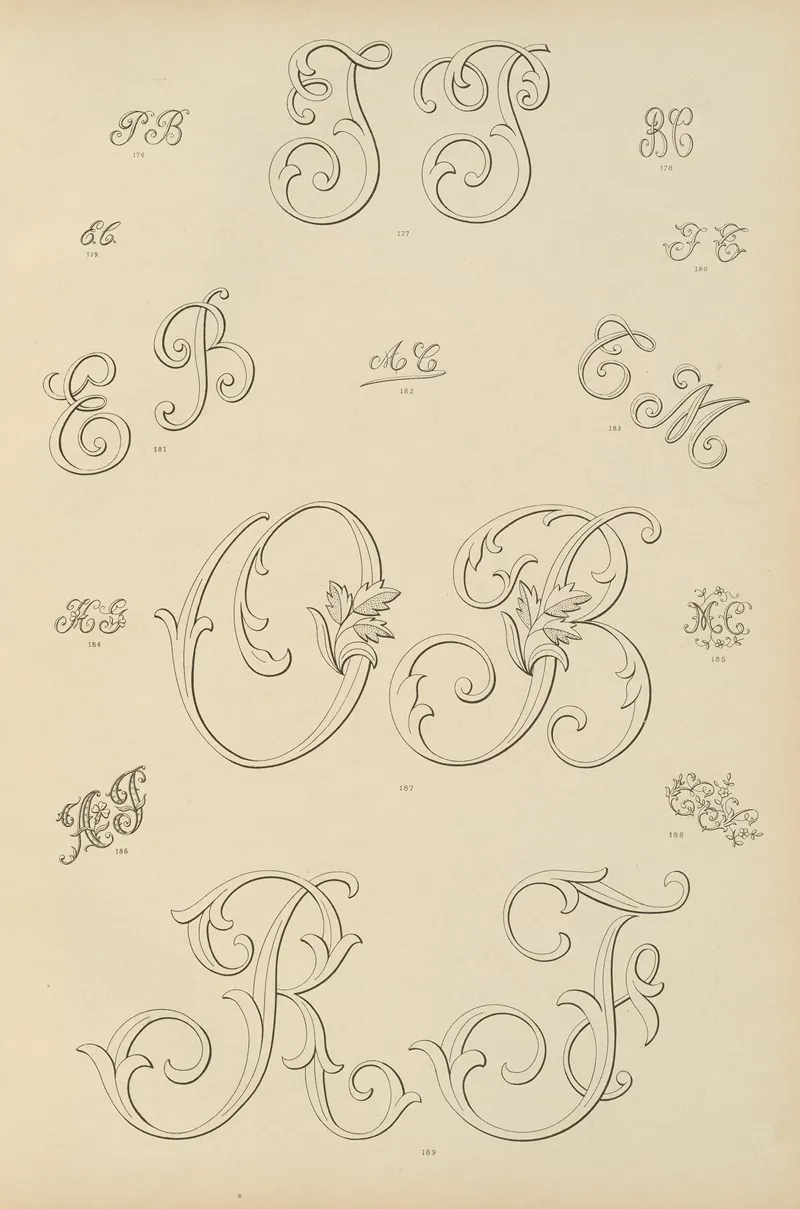 P B
176
T P
177
B C
178
E. C.
179
T C
180
E B
181
A C
182
C M
183
H G
184
M C
185
A T
186
O B
187
188
R F
189